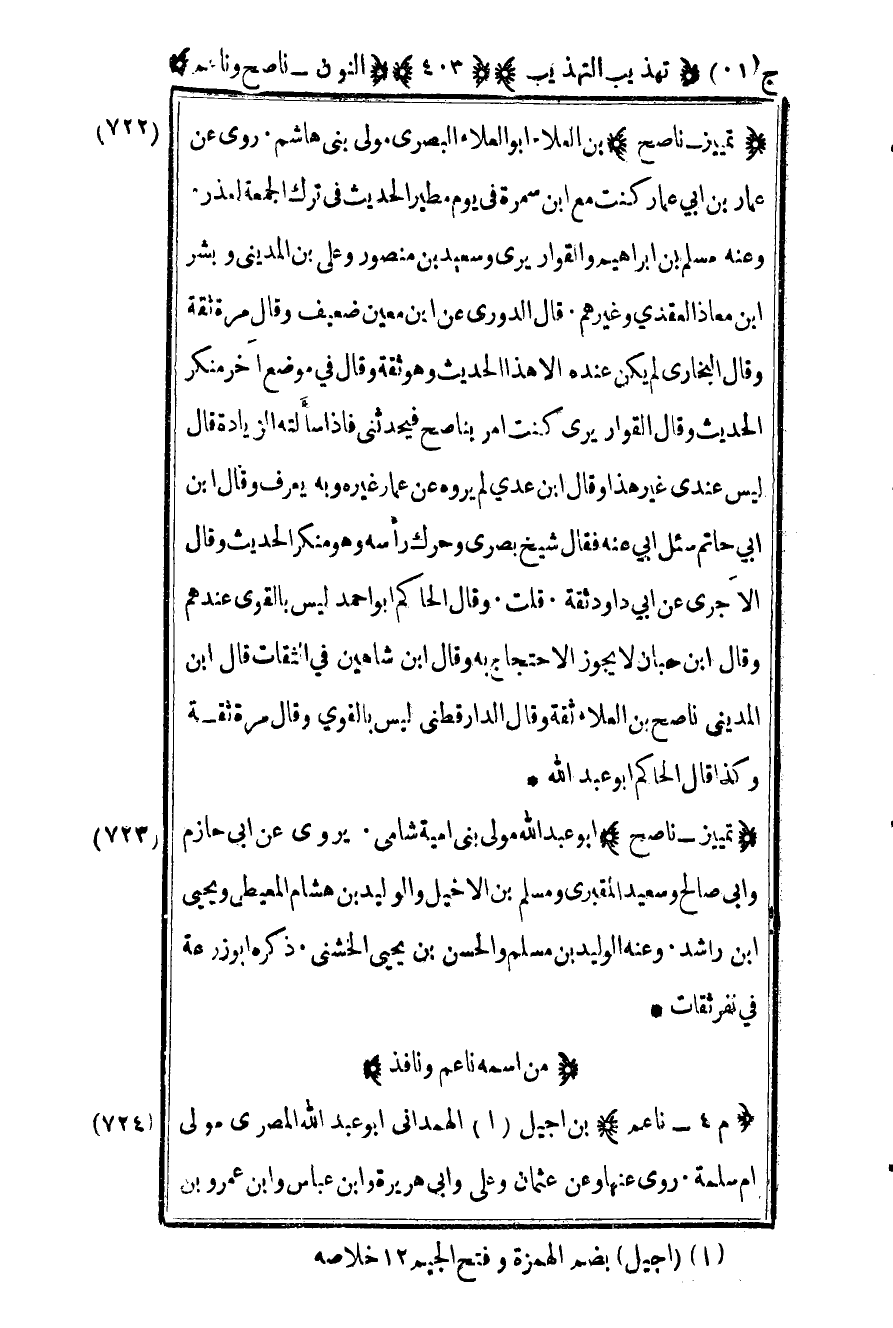 ج (٠١) ﴿ تهذيب التهذيب ﴾ ﴿ ٤٠٣ ﴾ ﴿ النون _ ناصح وناعم ﴾
(٧٢٢) ﴿ تمييز _ ناصح ﴾ بن العلاء ابو العلاء البصرى مولى بنى هاشم · روى عن
عمار بن ابي عمار كنت مع ابن سمرة فى يوم مطير الحديث فى ترك الجمعة لعذر ·
وعنه مسلم بن ابراهيم والقواريرى وسعيد بن منصور وعلى بن المدينى و بشر
ابن معاذ العقدي وغيرهم · قال الدورى عن ابن معين ضعيف وقال مرة ثقة
وقال البخارى لم يكن عنده الا هذا الحديث وهو ثقة وقال في موضع آخر منكر
الحديث وقال القواريرى كنت امر بناصح فيحدثنى فاذا سألته الزيادة قال
ليس عندى غير هذا وقال ابن عدي لم يروه عن عمار غيره وبه يعرف وقال ابن
ابي حاتم سئل ابي عنه فقال شيخ بصرى وحرك رأسه وهو منكر الحديث وقال
الآجرى عن ابي داود ثقة · قلت · وقال الحاكم ابو احمد ليس بالقوى عندهم
وقال ابن حبان لا يجوز الاحتجاج به وقال ابن شاهين في الثقات قال ابن
المدينى ناصح بن العلاء ثقة وقال الدارقطنى ليس بالقوي وقال مرة ثقـة
وكذا قال الحاكم ابو عبد الله *
(٧٢٣) ﴿ تمييز _ ناصح ﴾ ابو عبد الله مولى بنى امية شامى · يروى عن ابى حازم
وابى صالح وسعيد المقبرى ومسلم بن الاخيل والوليد بن هشام المعيطى ويحيى
ابن راشد · وعنه الوليد بن مسلم والحسن بن يحيى الخشنى · ذكره ابو زرعة
في نفر ثقات *
﴿ من اسمه ناعم ونافذ ﴾
(٧٢٤) ﴿ م ٤ _ ناعم ﴾ بن اجيل (١) الهمدانى ابو عبد الله المصرى مولى
ام سلمة · روى عنها وعن عثمان وعلى وابي هريرة وابن عباس وابن عمرو بن
(١) (اجيل) بضم الهمزة و فتح الجيم ١٢ خلاصه